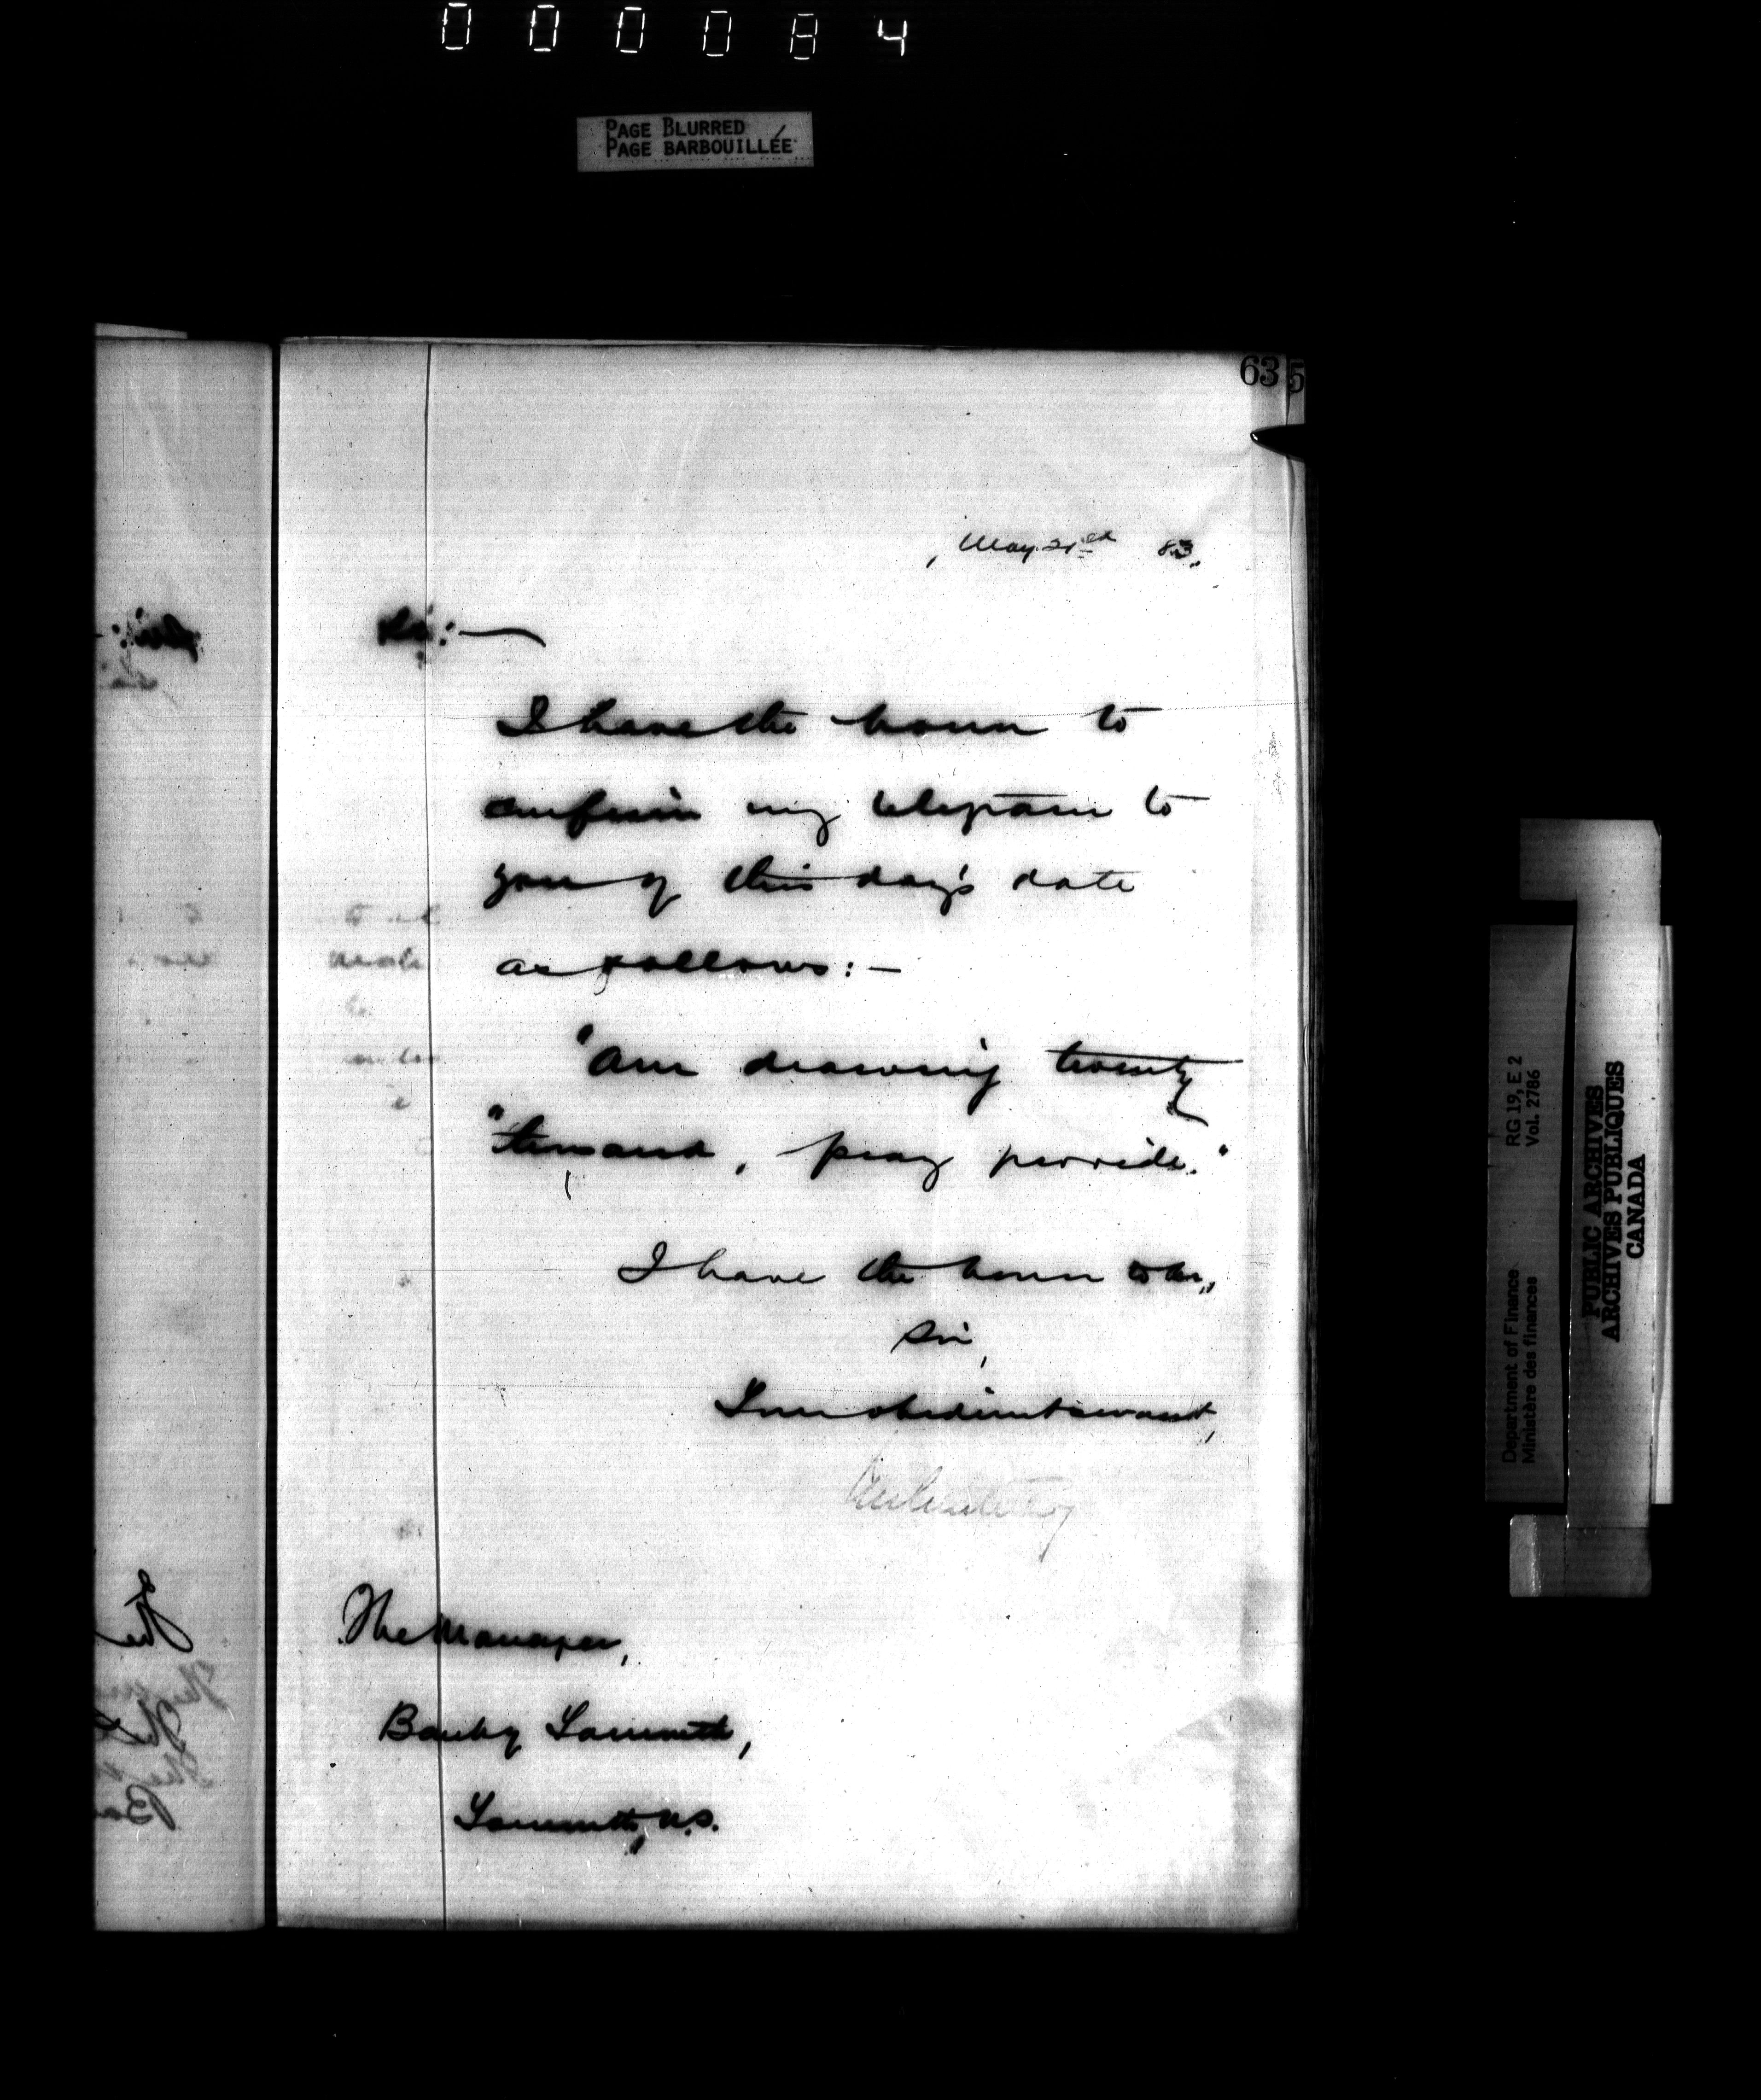 000084
PAGE BLURRED
PAGE BARBOUILLÉE
635
May 21st 83.
Sir:—
I have the honor to
confirm my telegram to
you of this day's date
as follows:—
"Am drawing twenty
"thousand, pray provide."
I have the honor to be,
Sir,
Your obedient servant,
The Manager,
Bank of Yarmouth,
Yarmouth, N.S.
RG 19, E 2
Vol. 2786
Department of Finance
Ministère des finances
PUBLIC ARCHIVES
ARCHIVES PUBLIQUES
CANADA